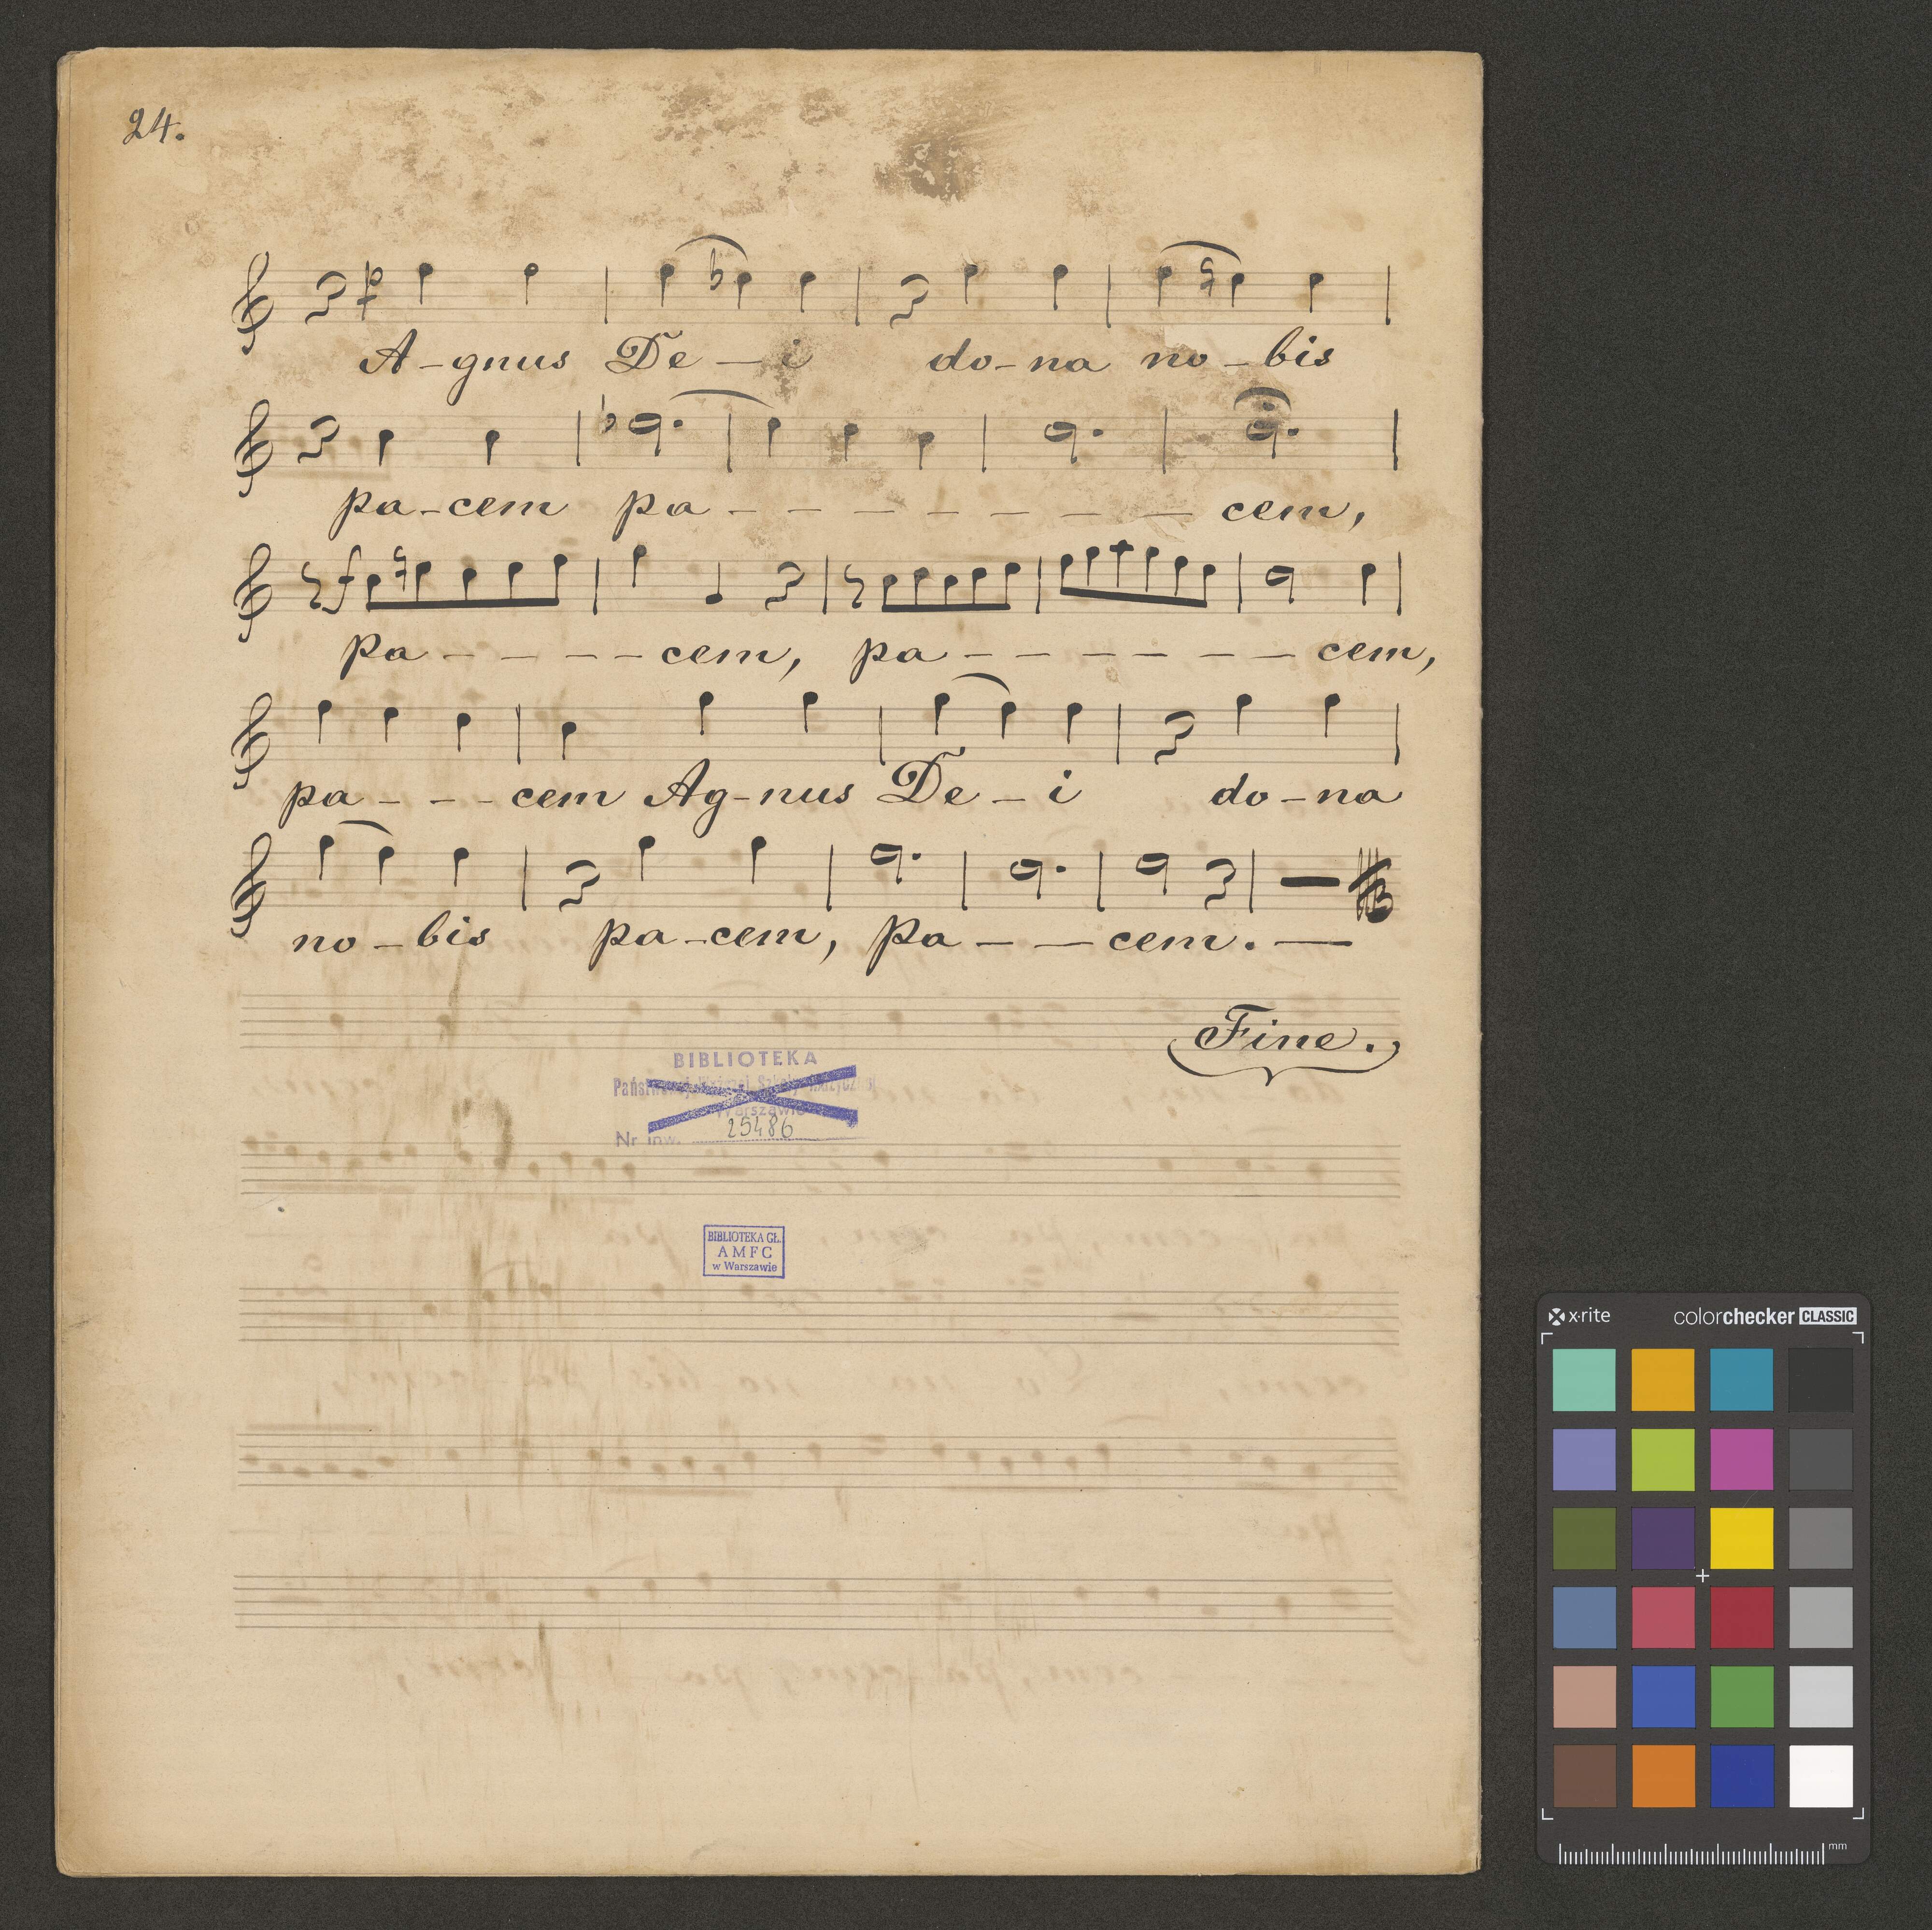 24.
A-gnus De-i do-na no-bis
pa-cem pa - - - - - - - - cem,
f
pa - - - - cem, pa - - - - - - cem,
pa - - - cem Ag-nus De-i do-na
no-bis pa-cem, pa - - cem. -
Fine.
BIBLIOTEKA
Warszawie
Nr inw. 25486
BIBLIOTEKA GŁ.
AMFC
w Warszawie
x·rite colorchecker CLASSIC
mm